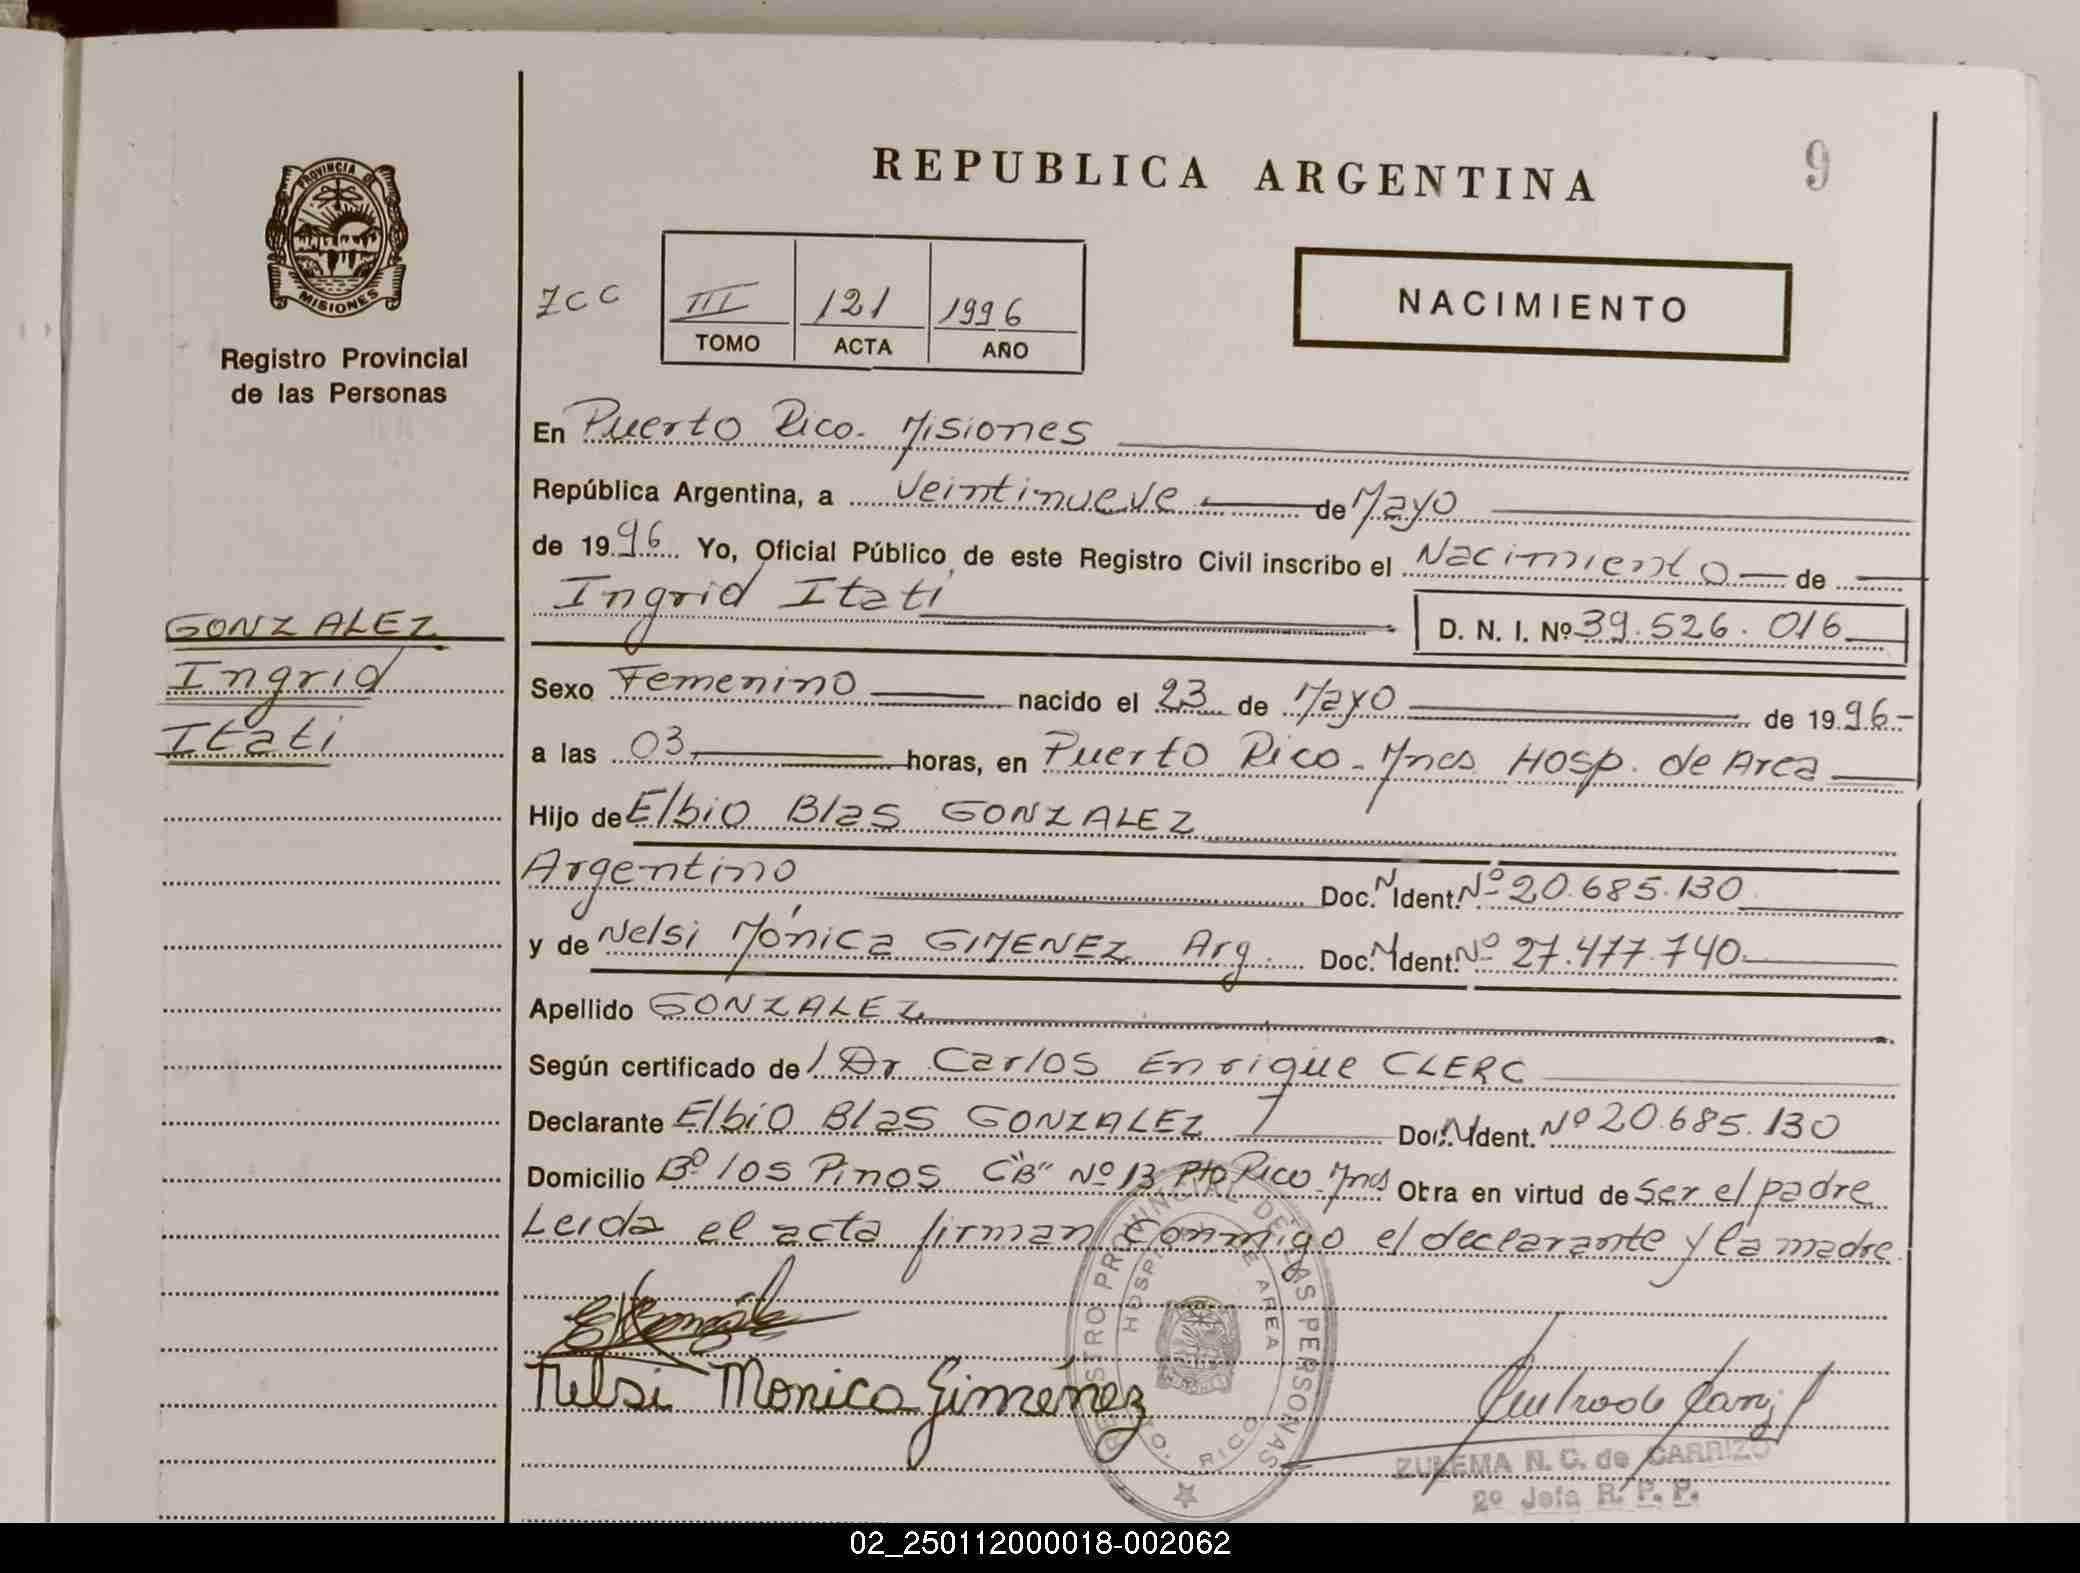 REPUBLICA ARGENTINA
9
PROVINCIA DE
MISIONES
Registro Provincial
de las Personas
ZCC
III 121 1996
TOMO ACTA AÑO
NACIMIENTO
En Puerto Rico. Misiones
República Argentina, a Veintinueve de Mayo
de 1996 Yo, Oficial Público de este Registro Civil inscribo el Nacimiento de
Ingrid Itati
D. N. I. Nº 39.526.016
GONZALEZ
Ingrid
Itati
Sexo Femenino nacido el 23 de Mayo de 1996
a las 03 horas, en Puerto Rico - Mnes Hosp. de Area
Hijo de Elbio Blas GONZALEZ
Argentino Doc. N. Ident. Nº 20.685.130
y de Nelsi Mónica GIMENEZ Arg. Doc. N. Ident. Nº 27.477.740
Apellido GONZALEZ
Según certificado de l Dr Carlos Enrique CLERC
Declarante Elbio Blas GONZALEZ Doc. N. Ident. Nº 20.685.130
Domicilio Bº los Pinos C"B" Nº 13 Pto Rico. Mnes Obra en virtud de Ser el padre
Leida el acta firman conmigo el declarante y la madre
Nelsi Monica Giménez
REGISTRO PROVINCIAL DE LAS PERSONAS
HOSPITAL DE AREA
PTO. RICO
ZULEMA N. C. de CARRIZO
2º Jefa R. P. P.
02_250112000018-002062